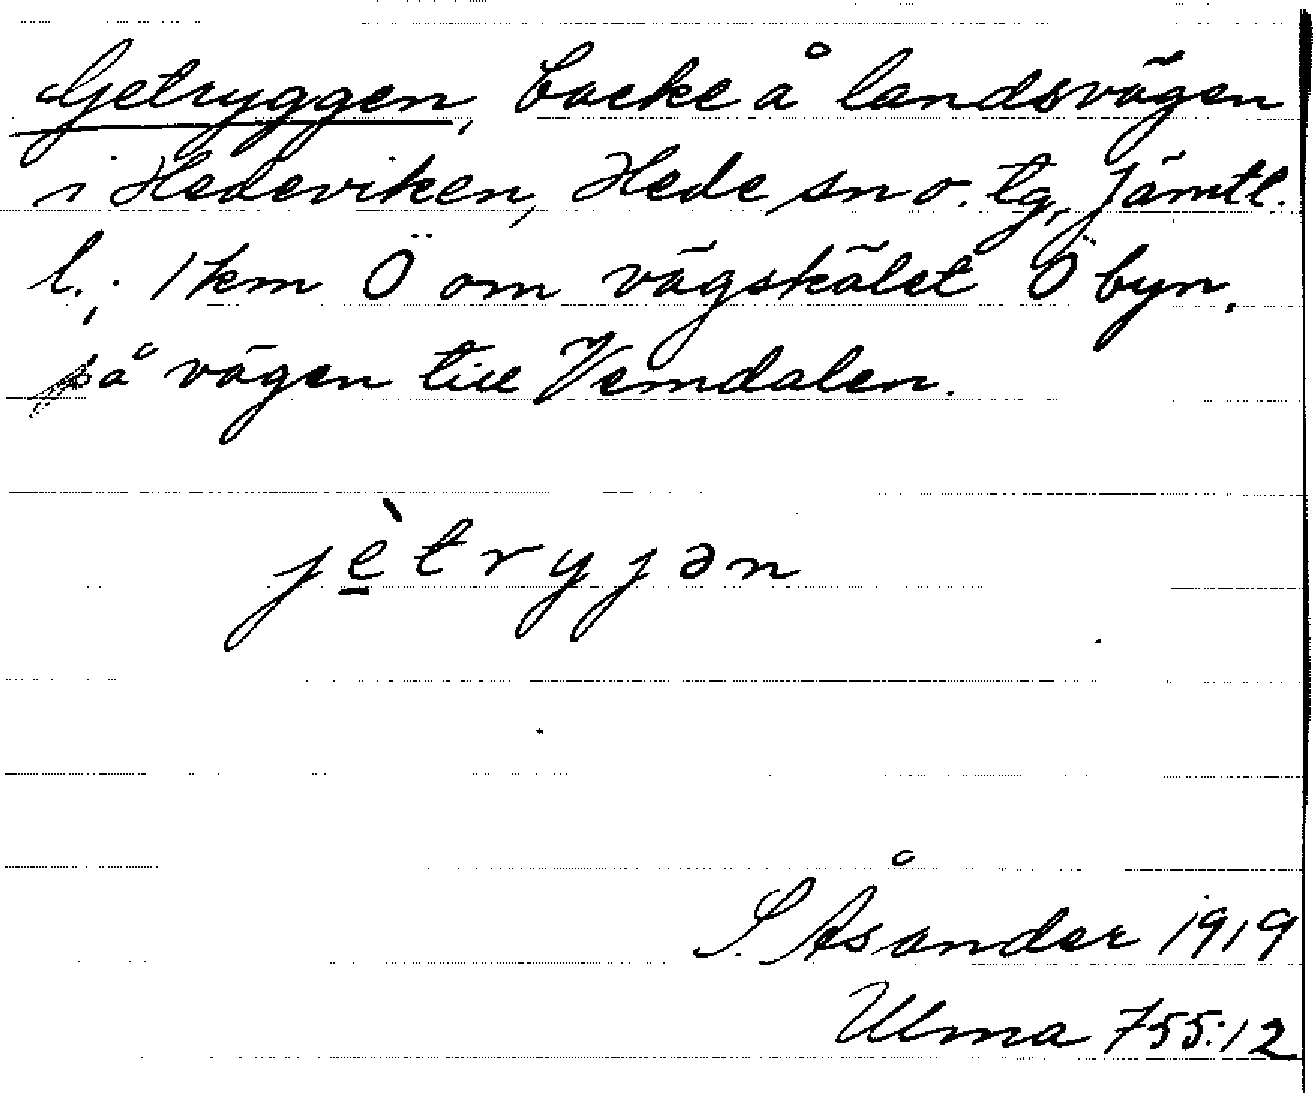 Getryggen, backe å landsvägen
i Hedeviken, Hede sn o. tg, Jämtl.
l.; 1 km Ö om vägskälet Ö byn,
på vägen till Vemdalen.
jètryjən
S. Åsander 1919
Ulma 755:12